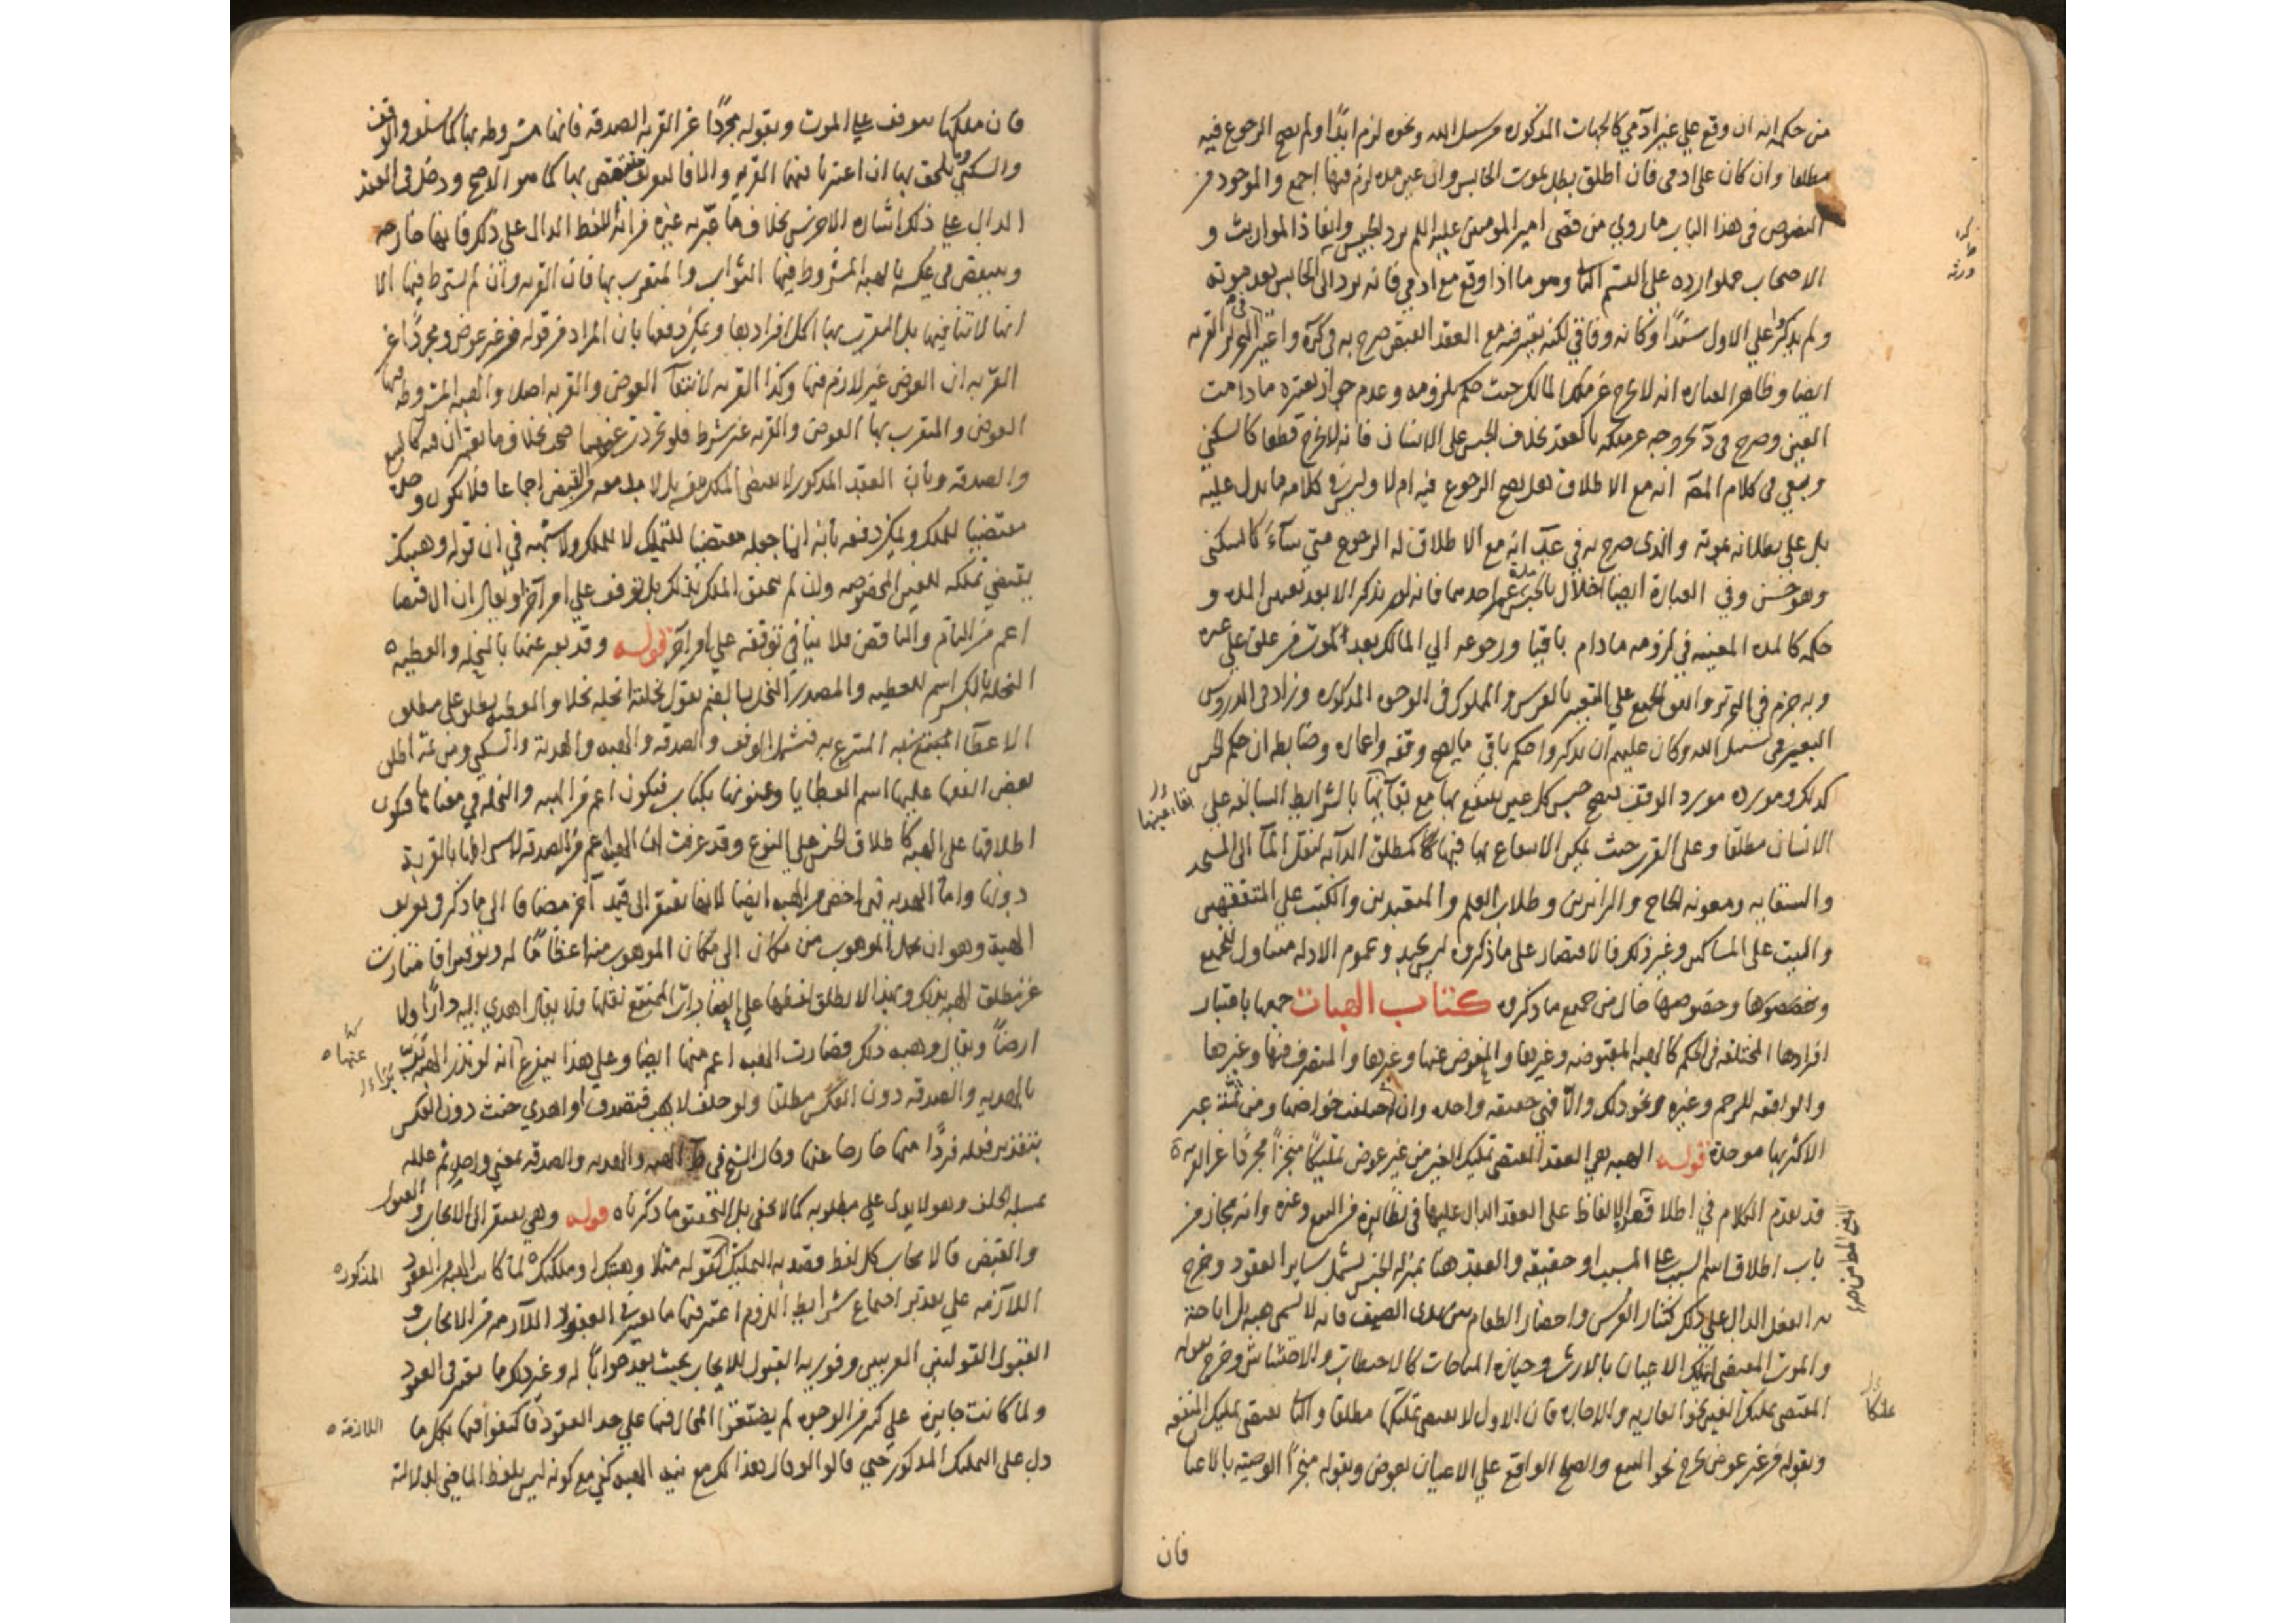 من حكمه انه ان وقع علي غير ادمي كالجهات المذكوره وسبيل الله ونحوه لزم ابدًا ولم يصح الرجوع فيه
مطلقا وان كان على ادمى فان اطلق بطل بموت الحابس وان عين مده لزم فيها اجمع والموجود من
النصوص فى هذا الباب ما روي من قضى امير المومنين عليه السلم برد الحبيس وانفاذ المواريث و
الاصحاب حملوا رده على القسم الثانى وهو ما اذا وقع مع ادمي فانه يرد الى الحابس بعد موته
ولم يذكروا علي الاول سندًا وكانه وفاقي لكنه يعتبر فيه مع العقد القبض صرح به فى كره واعتبر فى الحرير القربه
ايضا وظاهر العباره انه لا يخرج عن ملك المالك حيث حكم بلزومه وعدم جواز تغيره ما دامت
العين وصرح فى س بخروجه عن ملكه بالعقد بخلاف الحبس على الانسان فانه لا يخرج قطعا كالسكنى
وبقي فى كلام المصه انه مع الاطلاق هل يصح الرجوع فيه ام لا وليس في كلامه ما يدل عليه
بل على بطلانه بموته والذى صرح به في عد انه مع الاطلاق له الرجوع متي شآء كالسكنى
وهو حسن وفي العبارة ايضا اخلال بالحبس مدة على احدهما فانه لم يذكر الا بعد تعيين المده و
حكمه كالمده المعينه في لزومه ما دام باقيا ورجوعه الي المالك بعد الموت من علق على عمره
وبه جزم في التحرير واتفق الجميع علي التعبير بالفرس والمملوك فى الوجوه المذكوره وزاد فى الدروس
البعير فى سبيل الله وكان عليهم ان يذكروا حكم باقي ما يصح وقفه واعماره وضابطه ان حكم الحبس
كذلك ومورده مورد الوقف فيصح حبس كل عين ينتفع بها مع بقآئها بالشرايط السابقه على
الانسان مطلقا وعلى القرب حيث يمكن الانتفاع بها فيها كمطلق الدابه لنقل المآ الى المسجد
والسقايه ومعونه الحاج والزائرين وطلاب العلم والمتعبدين والكتب على المتفقهين
والبيت على المساكين وغير ذلك فالاقتصار على ما ذكروه ليس بجيد وعموم الادله متناول للجميع
وخصوصها خال من جميع ما ذكروه كتاب الهبات جمعها باعتبار
افرادها المختلفه فى الحكم كالهبه المقبوضه وغيرها والمعوض عنها وغيرها والمتصرف فيها وغيرها
والواقعه للرحم وغيره ونحو ذلك والا فهي حقيقه واحده وان اختلفت خواصها ومن ثمة عبر
الاكثر بها موحدة قوله الهبه هي العقد المقتضى تمليك العين من غير عوض تمليكًا منجزًا مجردًا عن القربه
قد يقدم الكلام في اطلاق هذه الالفاظ على العقد الدال عليها فى نظايره من البيع وغيره وانه مجاز من
باب اطلاق اسم السبب على المسبب او حقيقه والعقد هنا بمنزله الجنس يشمل ساير العقود وخرج
به الفعل الدال على ذلك كنثار العرس واحضار الطعام بين يدى الضيف فانه لا يسمى هبه بل اباحة
والموت المقتضى لتملك الاعيان بالارث وحيازه المباحات كالاحتطاب والاحتشاش وخرج بقوله
المقتضى تمليك العين نحو العاريه والاجاره فان الاول لا يقتضى تمليكها مطلقا والثانى يقتضى تمليك المنفعه
وبقوله من غير عوض يخرج نحو البيع والصلح الواقع علي الاعيان بعوض وبقوله منجزًا الوصيته بالاعيا
فان
فان ملكها يتوقف علي الموت وبقوله مجردًا عن القربه الصدقه فانها مشروطه بها كما سلف والوقف
والسكني ويلحق بها ان اعتبرنا فيهما القربه والا فالتعريف منتقض بها كما هو الاصح ودخل فى العقد
الدال علي ذلك اشاره الاخرس بخلاف ما عبر به غيره من انه اللفظ الدال على ذلك فانها خارجه
وينتقض في عكسه بالهبه المشروط فيها الثواب والمتقرب بها فان القربه وان لم يشترط فيها الا
انها لا تنافيها بل المتقرب بها اكمل افرادها ويمكن دفعها بان المراد من قوله من غير عوض ومجردًا عن
القربه ان العوض غير لازم فيها وكذا القربه لا انتفآء العوض والقربه اصلا والهبه المشروطه فيها
العوض والمتقرب بها العوض والقربه غير شرط فلو تجردت عنهما صحت بخلاف ما يعتبران فيه كالبيع
والصدقه وبان العقد المذكور لا يقتضى الملك بل لا بد معه من القبض اجماعا فلا يكون وحده
مقتضيا للملك ويمكن دفعه بانه انما جعله مقتضيا للتمليك لا للملك ولا شبهه في ان قوله وهبتك
يقتضي تملكه للعين المخصوصه وان لم يتحقق الملك بذلك بل توقف علي امر آخر او يقال ان الاقتضا
اعم من التام والناقص فلا ينافي توقفه علي امر آخر قوله وقد يعبر عنها بالنحله والعطيه
النحله بالكسر اسم للعطيه والمصدر النحل بالضم يقول نحلته انحله نحلا والعطيه يطلق على مطلق
الاعطآ المتبرع به فيشمل الوقف والصدقه والهبه والهدية والسكنى ومن ثمة اطلق
بعض الفقها عليها اسم العطايا وعنونها بكتاب فيكون اعم من الهبه والنحله في معناها فيكون
اطلاقها على الهبه كاطلاق الجنس على النوع وقد عرفت ان الهبه اعم من الصدقه لاشتراطها بالقربة
دونها واما الهديه فهي اخص من الهبه ايضا لانها يفتقر الى قيد آخر مضافا الى ما ذكر فى تعريف
الهبة وهو ان يحمل الموهوب من مكان الى مكان الموهوب منه اعظامًا له وتوقيرا فامتازت
عن مطلق الهبه بذلك ولهذا لا يطلق لفظها على العقارات الممتنع نقلها فلا يقال اهدي اليه دارًا ولا
ارضًا ويقال وهبه ذلك فصارت الهبه اعم منها ايضا وعلي هذا يتفرع انه لو نذر الهبه
بالهديه والصدقه دون العكس مطلقا ولو حلف لا يهب فتصدق او اهدي حنث دون العكس
بتقدير فعله فردًا منها خارجا عنها وقال الشيخ في ط الهبه والهديه والصدقه بمعني واحد ثم علله
بمسئلة الحلف وهو لا يدل علي مطلوبه كما لا يخفى بل التحقيق ما ذكرناه قوله وهي يفتقر الى الايجاب والقبول
والقبض فالايجاب كل لفظ قصد به التمليك كقوله مثلا وهبتك وملكتك لما كانت الهبه من العقود المذكوره
اللازمه علي تقدير اجتماع شرايط اللزوم اعتبر فيها ما يعتبر في العقود اللازمه من الايجاب و
القبول القوليين العربيين وفوريه القبول للايجاب بحيث يعد جوابًا له وغير ذلك مما يعتبر فى العقود
ولما كانت جايزه علي كثير من الوجوه لم يضيقوا المجال فيها علي حد العقود فاكتفوا فيها بكل ما اللازمة
دل على التمليك المذكور حتي قالوا لو قال هذا لك مع نيه الهبه كفي مع كونه ليس بلفظ الماضي لدلالته